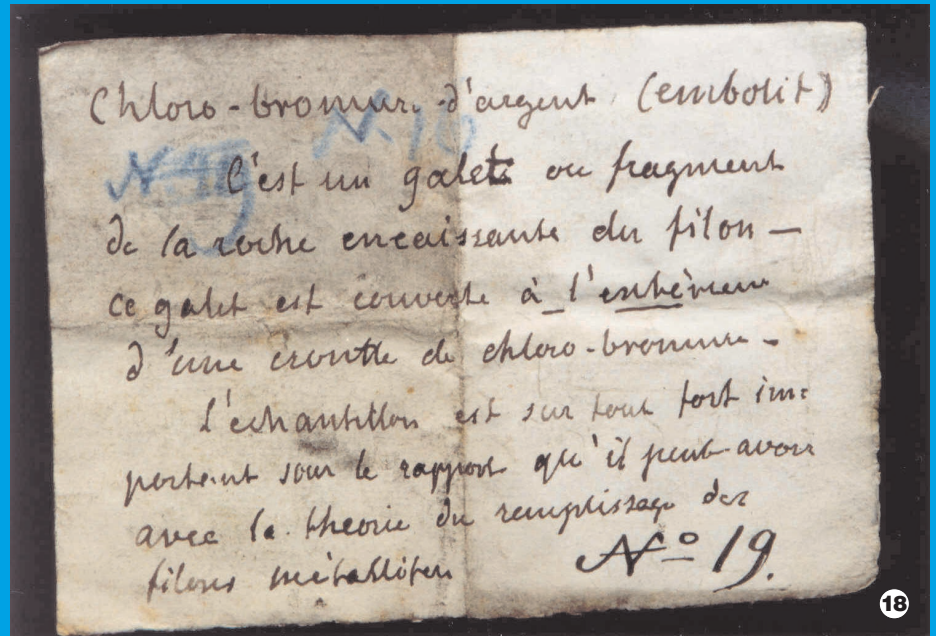 Chloro-bromure d'argent (embolit)
N. 16
C'est un galet ou fragment
de la roche encaissante du filon —
ce galet est couverte à l'extèrieur
d'une croutte de chloro-bromure -
L'echantillon est sur tout fort im=
portent sour le rapport qu'il peut avoir
avec la theorie du remplissage des
filons mètallifers
Nº 19.
18